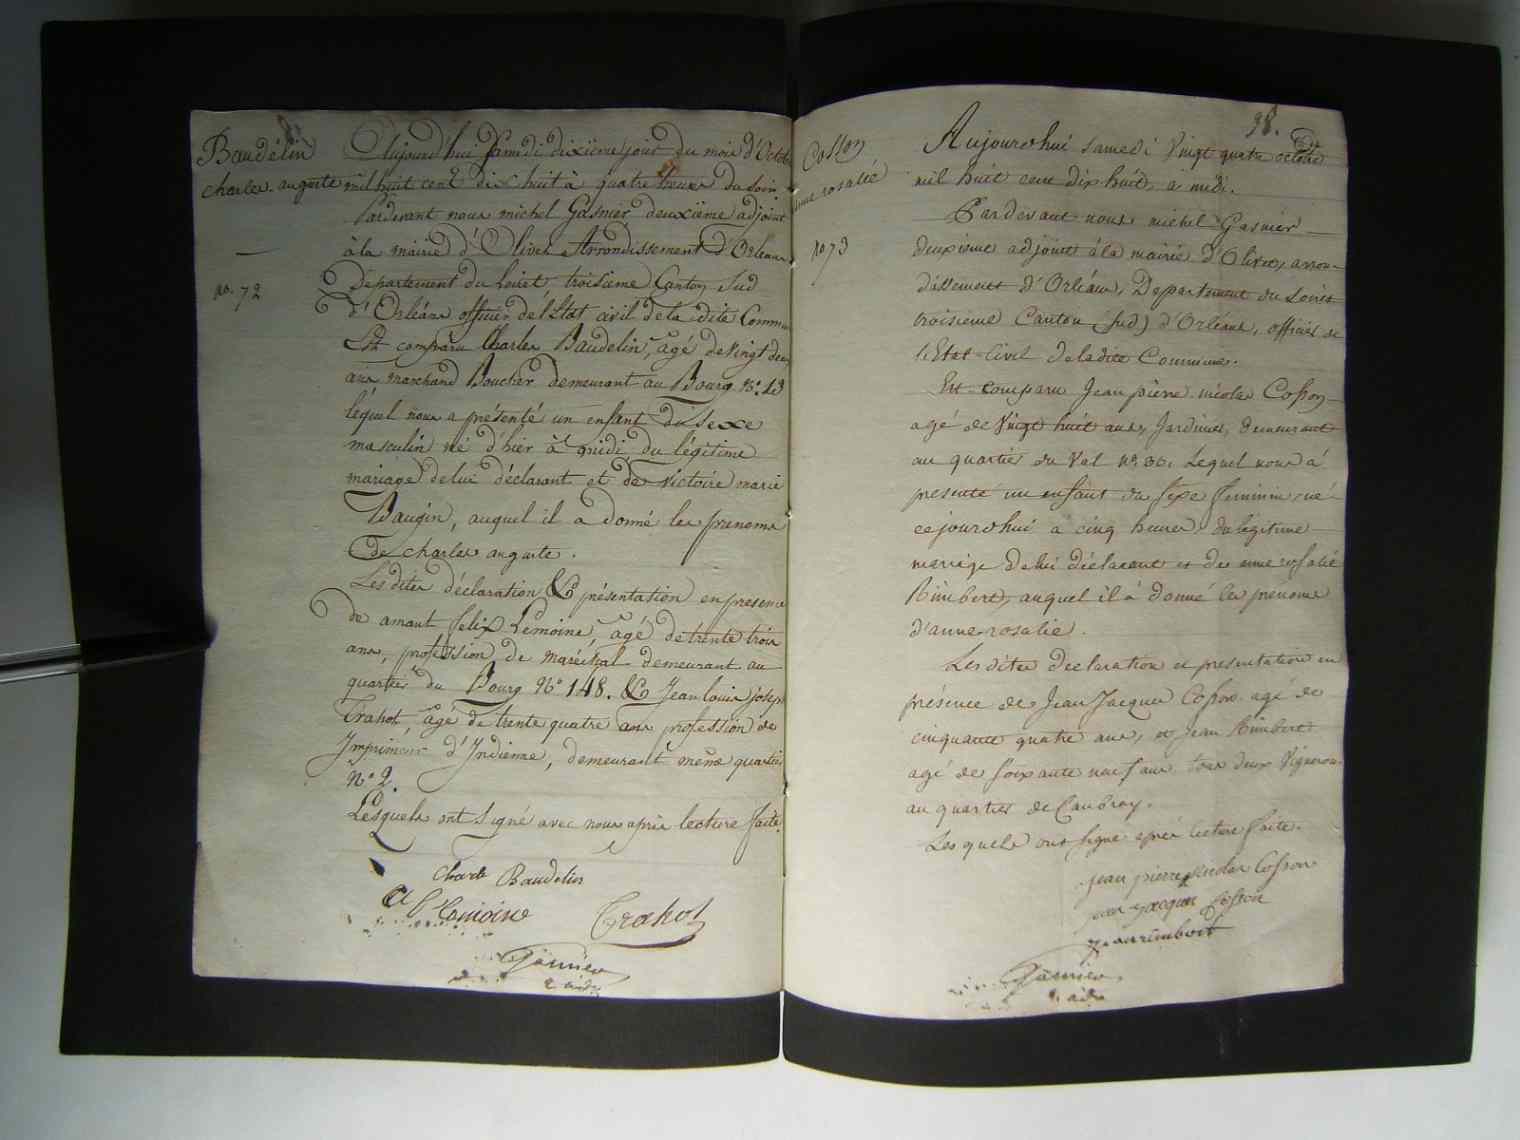 Baudélin
charles auguste
no. 72
Aujourd'hui Samedi dixième jour du mois d'Octob
mil huit cent dix huit à quatre heures du soir
Pardevant nous michel Gasnier deuxième adjoint
à la mairie d'Olivet Arrondissement d'Orleans
Département du Loiret, troisieme Canton Sud
d'Orléans officier de l'Etat civil de la dite Commu
Est comparu Charles Baudelin, agé de Vingt deux
ans marchand Boucher demeurant au Bourg No. 43
lequel nous a présenté un enfant du sexe
masculin né d'hier à midi du légitime
mariage de lui déclarant et de victoire marie
Baugin, auquel il a donné les prenoms
de charles auguste.
Les dites déclaration & présentation en presence
de amant felix Lemoine, agé de trente trois
ans, profession de maréchal demeurant au
quartier du Bourg No 148. & Jean louis josep
Trahot, agé de trente quatre ans profession de
Imprimeur d'Indienne, demeurant même quartier
No 2.
Lesquels ont signé avec nous après lecture faite.
Charles Baudelin
Lemoine
Trahot
Gasnier
98.
Cosson
anne rosalie
no 73
Aujourd'hui samedi Vingt quatre octobre
mil huit cent dix huit, a midi.
Pardevant nous michel Gasnier
deuxieme adjoint à la mairie d'Olivet, arron-
dissement d'Orléans, Departement du Loiret
troisieme Canton (Sud) d'Orléans, officier de
l'Etat-Civil de la dite Commune.
Est comparu Jean pierre nicolas Cosson
agé de Vingt huit ans, Jardinier, demeurant
au quartier du Val No. 30. Lequel nous a
presenté un enfant du sexe feminin, né
ce jourd'hui à cinq heures du légitime
mariage de lui déclarant et de anne rosalie
Rimbert, auquel il a donné les prénoms
d'anne rosalie.
Les dites declaration et presentation en
présence de Jean Jacques Cosson agé de
cinquante quatre ans, et Jean Rimbert
agé de soixante neuf ans tous deux Vignerons
au quartier de Caubray.
Les quels ont signé après lecture faite.
jean pierre nicolas Cosson
jean jacques Cosson
jean rimbert
Gasnier